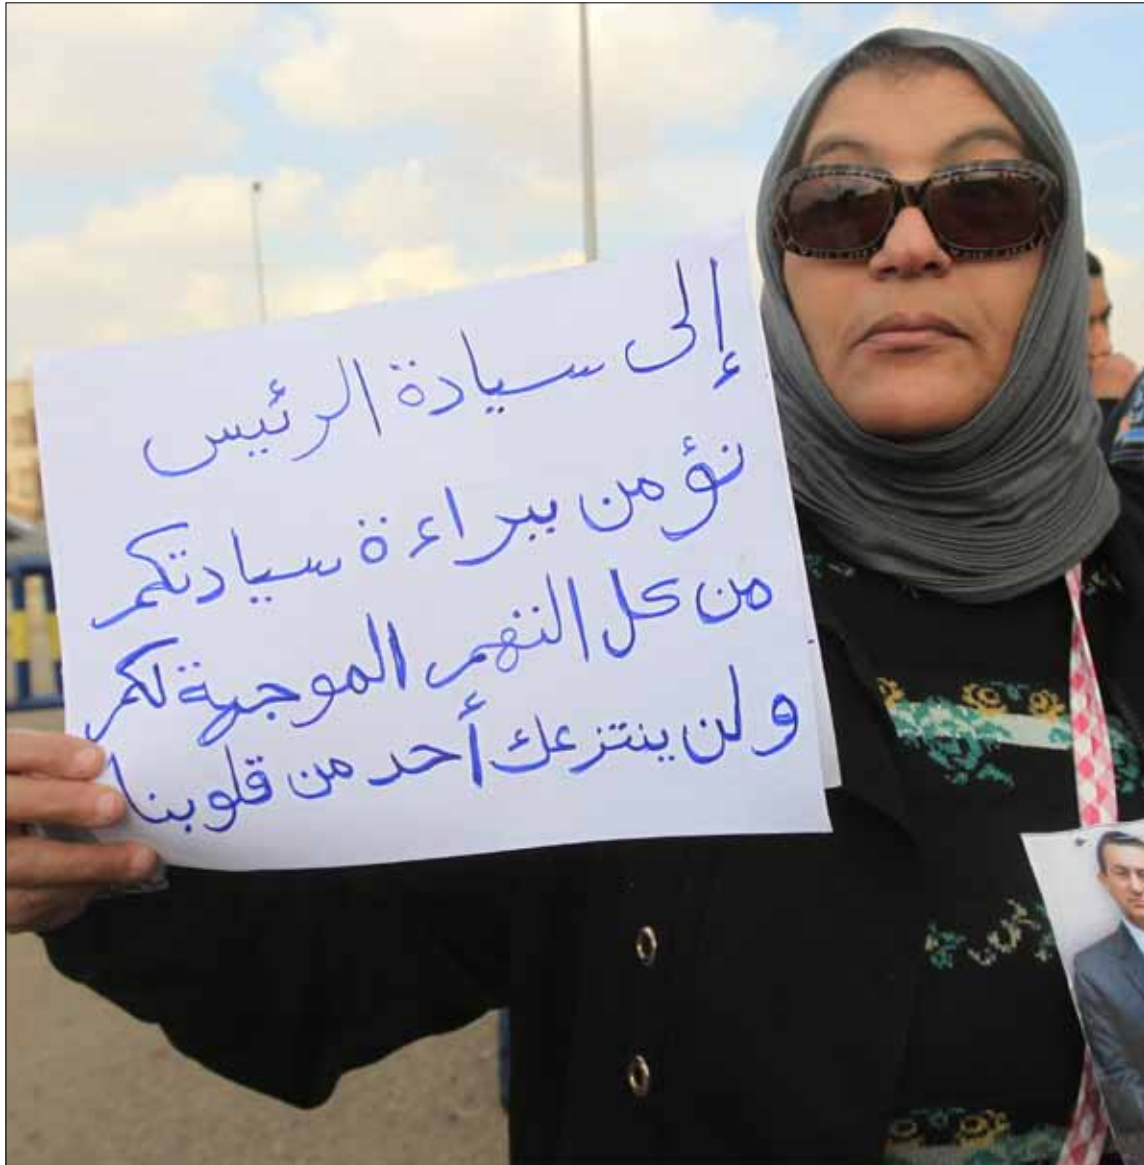 إلى سيادة الرئيس
نؤمن ببراءة سيادتكم
من كل التهم الموجهة لكم
ولن ينتزعك أحد من قلوبنا